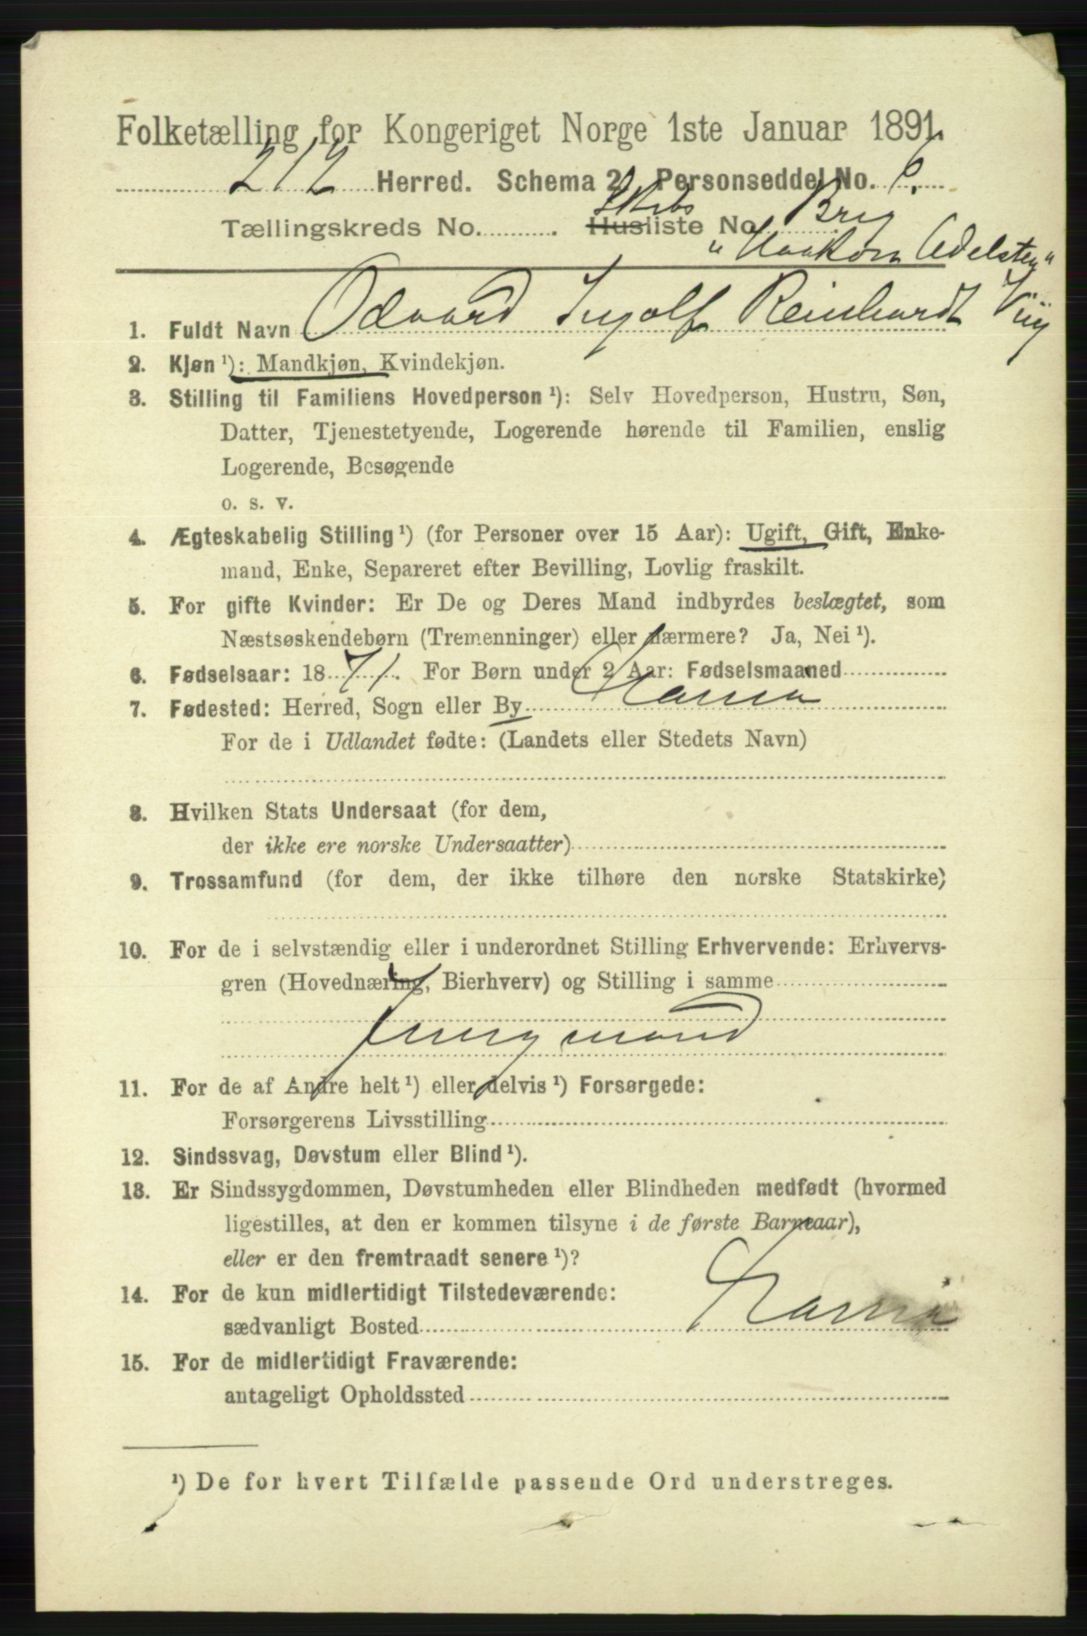 Folketælling for Kongeriget Norge 1ste Januar 1891.
212 Herred. Schema 2. Personseddel No. 6.
Tællingskreds No. Skibs Husliste No. Brig
"Haakon Adelsten"
1. Fuldt Navn Edvard Ingolf Reinhardt
2. Kjøn ¹): Mandkjøn, Kvindekjøn.
3. Stilling til Familiens Hovedperson ¹): Selv Hovedperson, Hustru, Søn,
Datter, Tjenestetyende, Logerende hørende til Familien, enslig
Logerende, Besøgende
o. s. v.
4. Ægteskabelig Stilling ¹) (for Personer over 15 Aar): Ugift, Gift, Enke-
mand, Enke, Separeret efter Bevilling, Lovlig fraskilt.
5. For gifte Kvinder: Er De og Deres Mand indbyrdes beslægtet, som
Næstsøskendebørn (Tremenninger) eller nærmere? Ja, Nei ¹).
6. Fødselsaar: 1871. For Børn under 2 Aar: Fødselsmaaned
7. Fødested: Herred, Sogn eller By
For de i Udlandet fødte: (Landets eller Stedets Navn)
8. Hvilken Stats Undersaat (for dem,
der ikke ere norske Undersaatter)
9. Trossamfund (for dem, der ikke tilhøre den norske Statskirke)
10. For de i selvstændig eller i underordnet Stilling Erhvervende: Erhvervs-
gren (Hovednæring, Bierhverv) og Stilling i samme
Jungmand
11. For de af Andre helt ¹) eller delvis ¹) Forsørgede:
Forsørgerens Livsstilling
12. Sindssvag, Døvstum eller Blind ¹).
13. Er Sindssygdommen, Døvstumheden eller Blindheden medfødt (hvormed
ligestilles, at den er kommen tilsyne i de første Barneaar),
eller er den fremtraadt senere ¹)?
14. For de kun midlertidigt Tilstedeværende:
sædvanligt Bosted
15. For de midlertidigt Fraværende:
antageligt Opholdssted
¹) De for hvert Tilfælde passende Ord understreges.